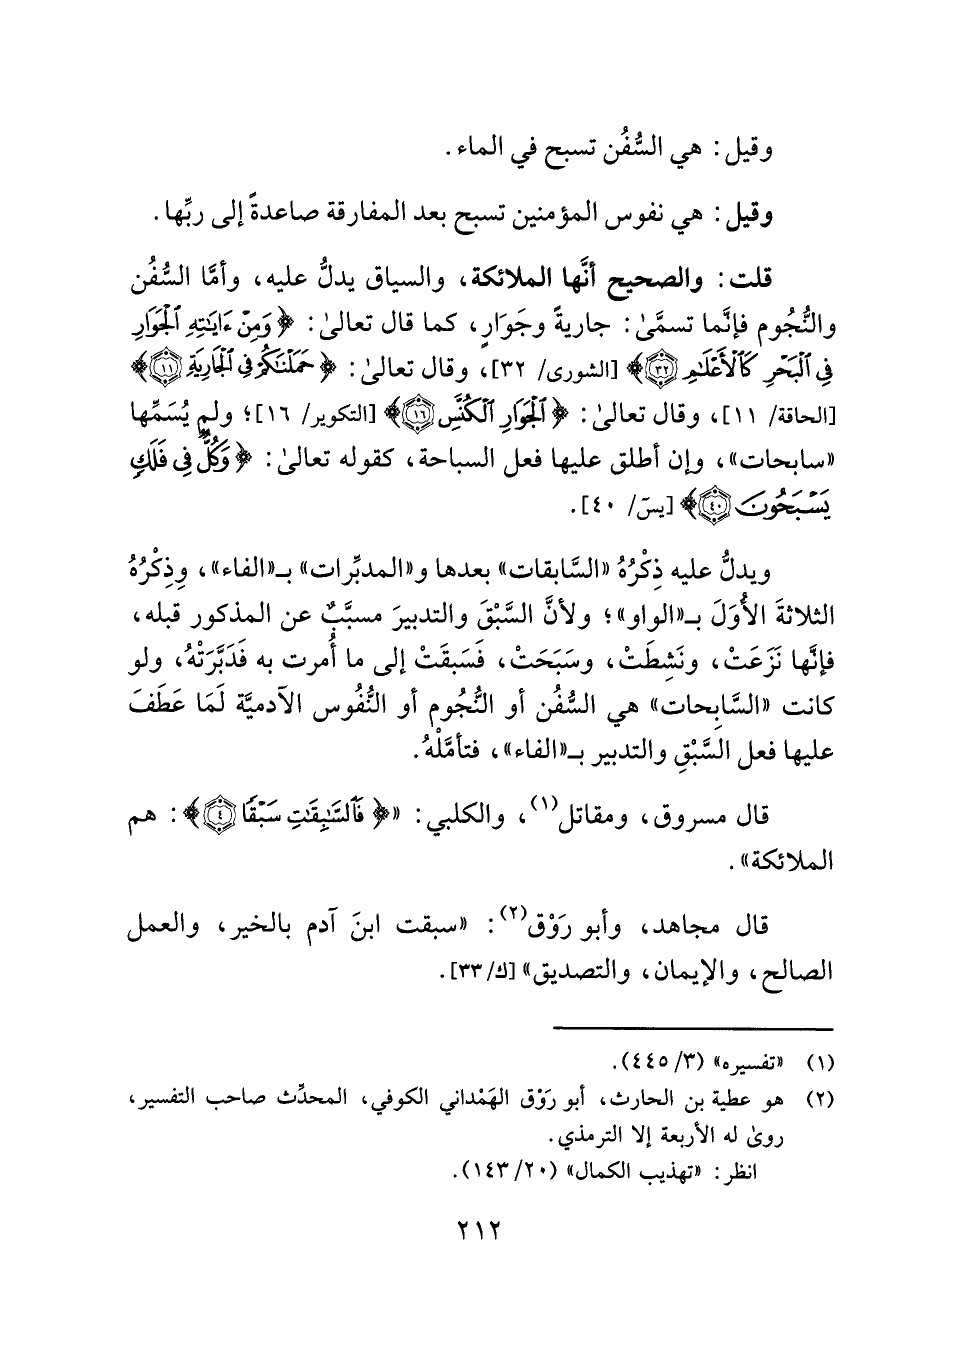 وقيل: هي السُّفُن تسبح في الماء.
وقيل: هي نفوس المؤمنين تسبح بعد المفارقة صاعدةً إلى ربِّها.
قلت: والصحيح أنَّها الملائكة، والسياق يدلُّ عليه، وأمَّا السُّفُن
والنُّجُوم فإنَّما تسمَّىٰ: جاريةً وجَوَارٍ، كما قال تعالىٰ: ﴿وَمِنْ ءَايَٰتِهِ ٱلْجَوَارِ
فِى ٱلْبَحْرِ كَٱلْأَعْلَٰمِ ٣٢﴾ [الشورى/ ٣٢]، وقال تعالىٰ: ﴿حَمَلْنَٰكُمْ فِى ٱلْجَارِيَةِ ١١﴾
[الحاقة/ ١١]، وقال تعالىٰ: ﴿ٱلْجَوَارِ ٱلْكُنَّسِ ١٦﴾ [التكوير/ ١٦]؛ ولم يُسَمِّها
«سابحات»، وإن أطلق عليها فعل السباحة، كقوله تعالىٰ: ﴿وَكُلٌّ فِى فَلَكٍ
يَسْبَحُونَ ٤٠﴾ [يسۤ/ ٤٠].
ويدلُّ عليه ذِكْرُهُ «السَّابقات» بعدها و«المدبِّرات» بـ«الفاء»، وذِكْرُهُ
الثلاثةَ الأُوَلَ بـ«الواو»؛ ولأنَّ السَّبْقَ والتدبيرَ مسبَّبٌ عن المذكور قبله،
فإنَّها نَزَعَتْ، ونَشِطَتْ، وسَبَحَتْ، فَسَبقَتْ إلى ما أُمرت به فَدَبَّرَتْهُ، ولو
كانت «السَّابِحات» هي السُّفُن أو النُّجُوم أو النُّفُوس الآدميَّة لَمَا عَطَفَ
عليها فعل السَّبْقِ والتدبير بـ«الفاء»، فتأمَّلْهُ.
قال مسروق، ومقاتل(١)، والكلبي: «﴿فَٱلسَّٰبِقَٰتِ سَبْقًا ٤﴾: هم
الملائكة».
قال مجاهد، وأبو رَوْق(٢): «سبقت ابنَ آدم بالخير، والعمل
الصالح، والإيمان، والتصديق» [ك/٣٣].
(١) «تفسيره» (٣/ ٤٤٥).
(٢) هو عطية بن الحارث، أبو رَوْق الهَمْداني الكوفي، المحدِّث صاحب التفسير،
روىٰ له الأربعة إلا الترمذي.
انظر: «تهذيب الكمال» (٢٠/ ١٤٣).
٢١٢